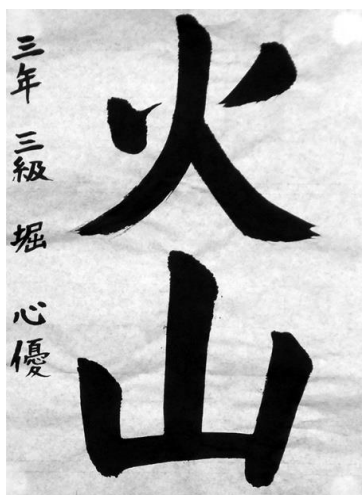 火山
三年 三級 堀 心優